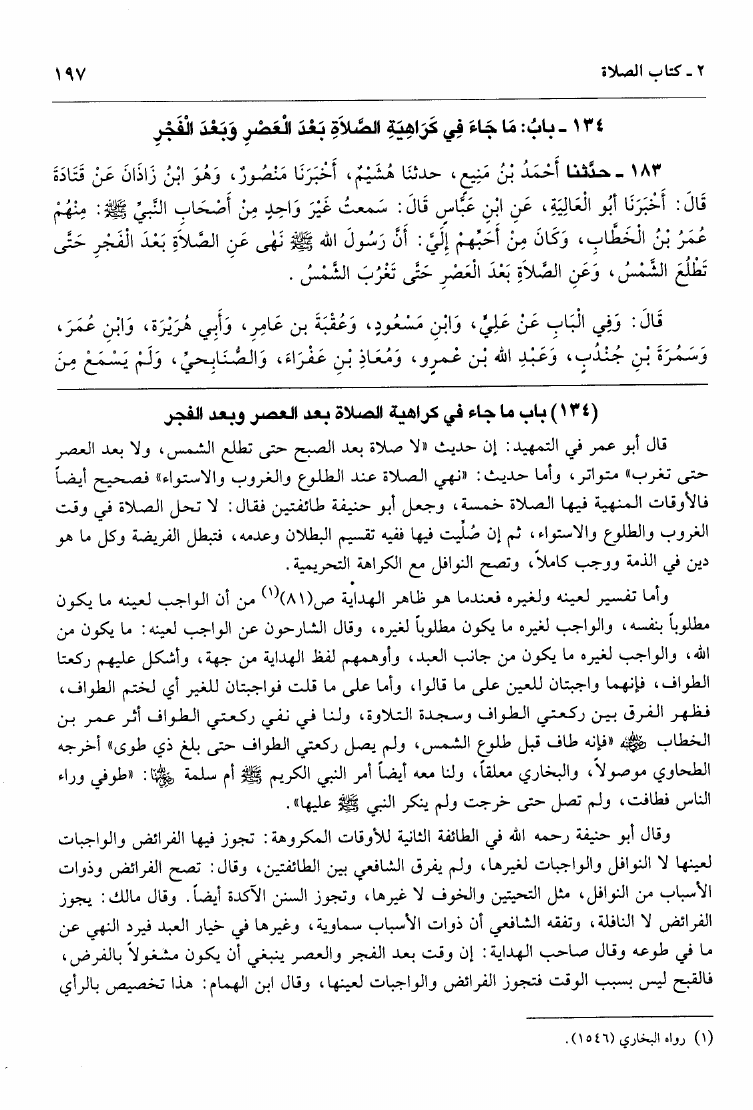 ٢ ـ كتاب الصلاة ١٩٧
١٣٤ ـ بابُ: مَا جَاءَ فِي كَرَاهِيَةِ الصَّلاَةِ بَعْدَ الْعَصْرِ وَبَعْدَ الْفَجْرِ
١٨٣ ـ حدَّثنا أَحْمَدُ بْنُ مَنِيعٍ، حدثنَا هُشَيْمٌ، أَخْبَرَنَا مَنْصُورٌ، وَهُوَ ابْنُ زَاذَانَ عَنْ قَتَادَةَ
قَالَ: أَخْبَرَنَا أبُو الْعَالِيَةِ، عَنِ ابْنِ عَبَّاسٍ قَالَ: سَمعتُ غَيْرَ وَاحِدٍ مِنْ أَصْحَابِ النَّبيِّ ﷺ: مِنْهُمْ
عمَرُ بْنُ الْخَطَّابِ، وَكَانَ مِنْ أَحَبِّهِمْ إِلَيَّ: أَنَّ رَسُولَ الله ﷺ نَهَى عَنِ الصَّلاَةِ بَعْدَ الْفَجْرِ حَتَّى
تَطْلُعَ الشَّمْسُ، وَعَنِ الصَّلاَةِ بَعْدَ الْعَصْرِ حَتَّى تَغْرُبَ الشَّمْسُ.
قَالَ: وَفِي الْبَابِ عَنْ عَلِيٍّ، وَابْنِ مَسْعُودٍ، وَعُقْبَةَ بن عَامِرٍ، وَأَبِي هُرَيْرَةَ، وَابْنِ عُمَرَ،
وَسَمُرَةَ بْنِ جُنْدُبٍ، وَعَبْدِ الله بْنِ عَمرٍو، وَمُعَاذِ بْنِ عَفْرَاءَ، وَالصُّنَابِحيِّ، وَلَمْ يَسْمَعْ مِنَ
(١٣٤) باب ما جاء في كراهية الصلاة بعد العصر وبعد الفجر
قال أبو عمر في التمهيد: إن حديث «لا صلاة بعد الصبح حتى تطلع الشمس، ولا بعد العصر
حتى تغرب» متواتر، وأما حديث: «نهي الصلاة عند الطلوع والغروب والاستواء» فصحيح أيضاً
فالأوقات المنهية فيها الصلاة خمسة، وجعل أبو حنيفة طائفتين فقال: لا تحل الصلاة في وقت
الغروب والطلوع والاستواء، ثم إن صُلِّيت فيها ففيه تقسيم البطلان وعدمه، فتبطل الفريضة وكل ما هو
دين في الذمة ووجب كاملاً، وتصح النوافل مع الكراهة التحريمية.
وأما تفسير لعينه ولغيره فعندما هو ظاهر الهداية ص(٨١)(١) من أن الواجب لعينه ما يكون
مطلوباً بنفسه، والواجب لغيره ما يكون مطلوباً لغيره، وقال الشارحون عن الواجب لعينه: ما يكون من
الله، والواجب لغيره ما يكون من جانب العبد، وأوهمهم لفظ الهداية من جهة، وأشكل عليهم ركعتا
الطواف، فإنهما واجبتان للعين على ما قالوا، وأما على ما قلت فواجبتان للغير أي لختم الطواف،
فظهر الفرق بين ركعتي الطواف وسجدة التلاوة، ولنا في نفي ركعتي الطواف أثر عمر بن
الخطاب رضي الله عنه «فإنه طاف قبل طلوع الشمس، ولم يصل ركعتي الطواف حتى بلغ ذي طوى» أخرجه
الطحاوي موصولاً، والبخاري معلقاً، ولنا معه أيضاً أمر النبي الكريم ﷺ أم سلمة رضي الله عنها: «طوفي وراء
الناس فطافت، ولم تصل حتى خرجت ولم ينكر النبي ﷺ عليها».
وقال أبو حنيفة رحمه الله في الطائفة الثانية للأوقات المكروهة: تجوز فيها الفرائض والواجبات
لعينها لا النوافل والواجبات لغيرها، ولم يفرق الشافعي بين الطائفتين، وقال: تصح الفرائض وذوات
الأسباب من النوافل، مثل التحيتين والخوف لا غيرها، وتجوز السنن الآكدة أيضاً. وقال مالك: يجوز
الفرائض لا النافلة، وتفقه الشافعي أن ذوات الأسباب سماوية، وغيرها في خيار العبد فيرد النهي عن
ما في طوعه وقال صاحب الهداية: إن وقت بعد الفجر والعصر ينبغي أن يكون مشغولاً بالفرض،
فالقبح ليس بسبب الوقت فتجوز الفرائض والواجبات لعينها، وقال ابن الهمام: هذا تخصيص بالرأي
(١) رواه البخاري (١٥٤٦).